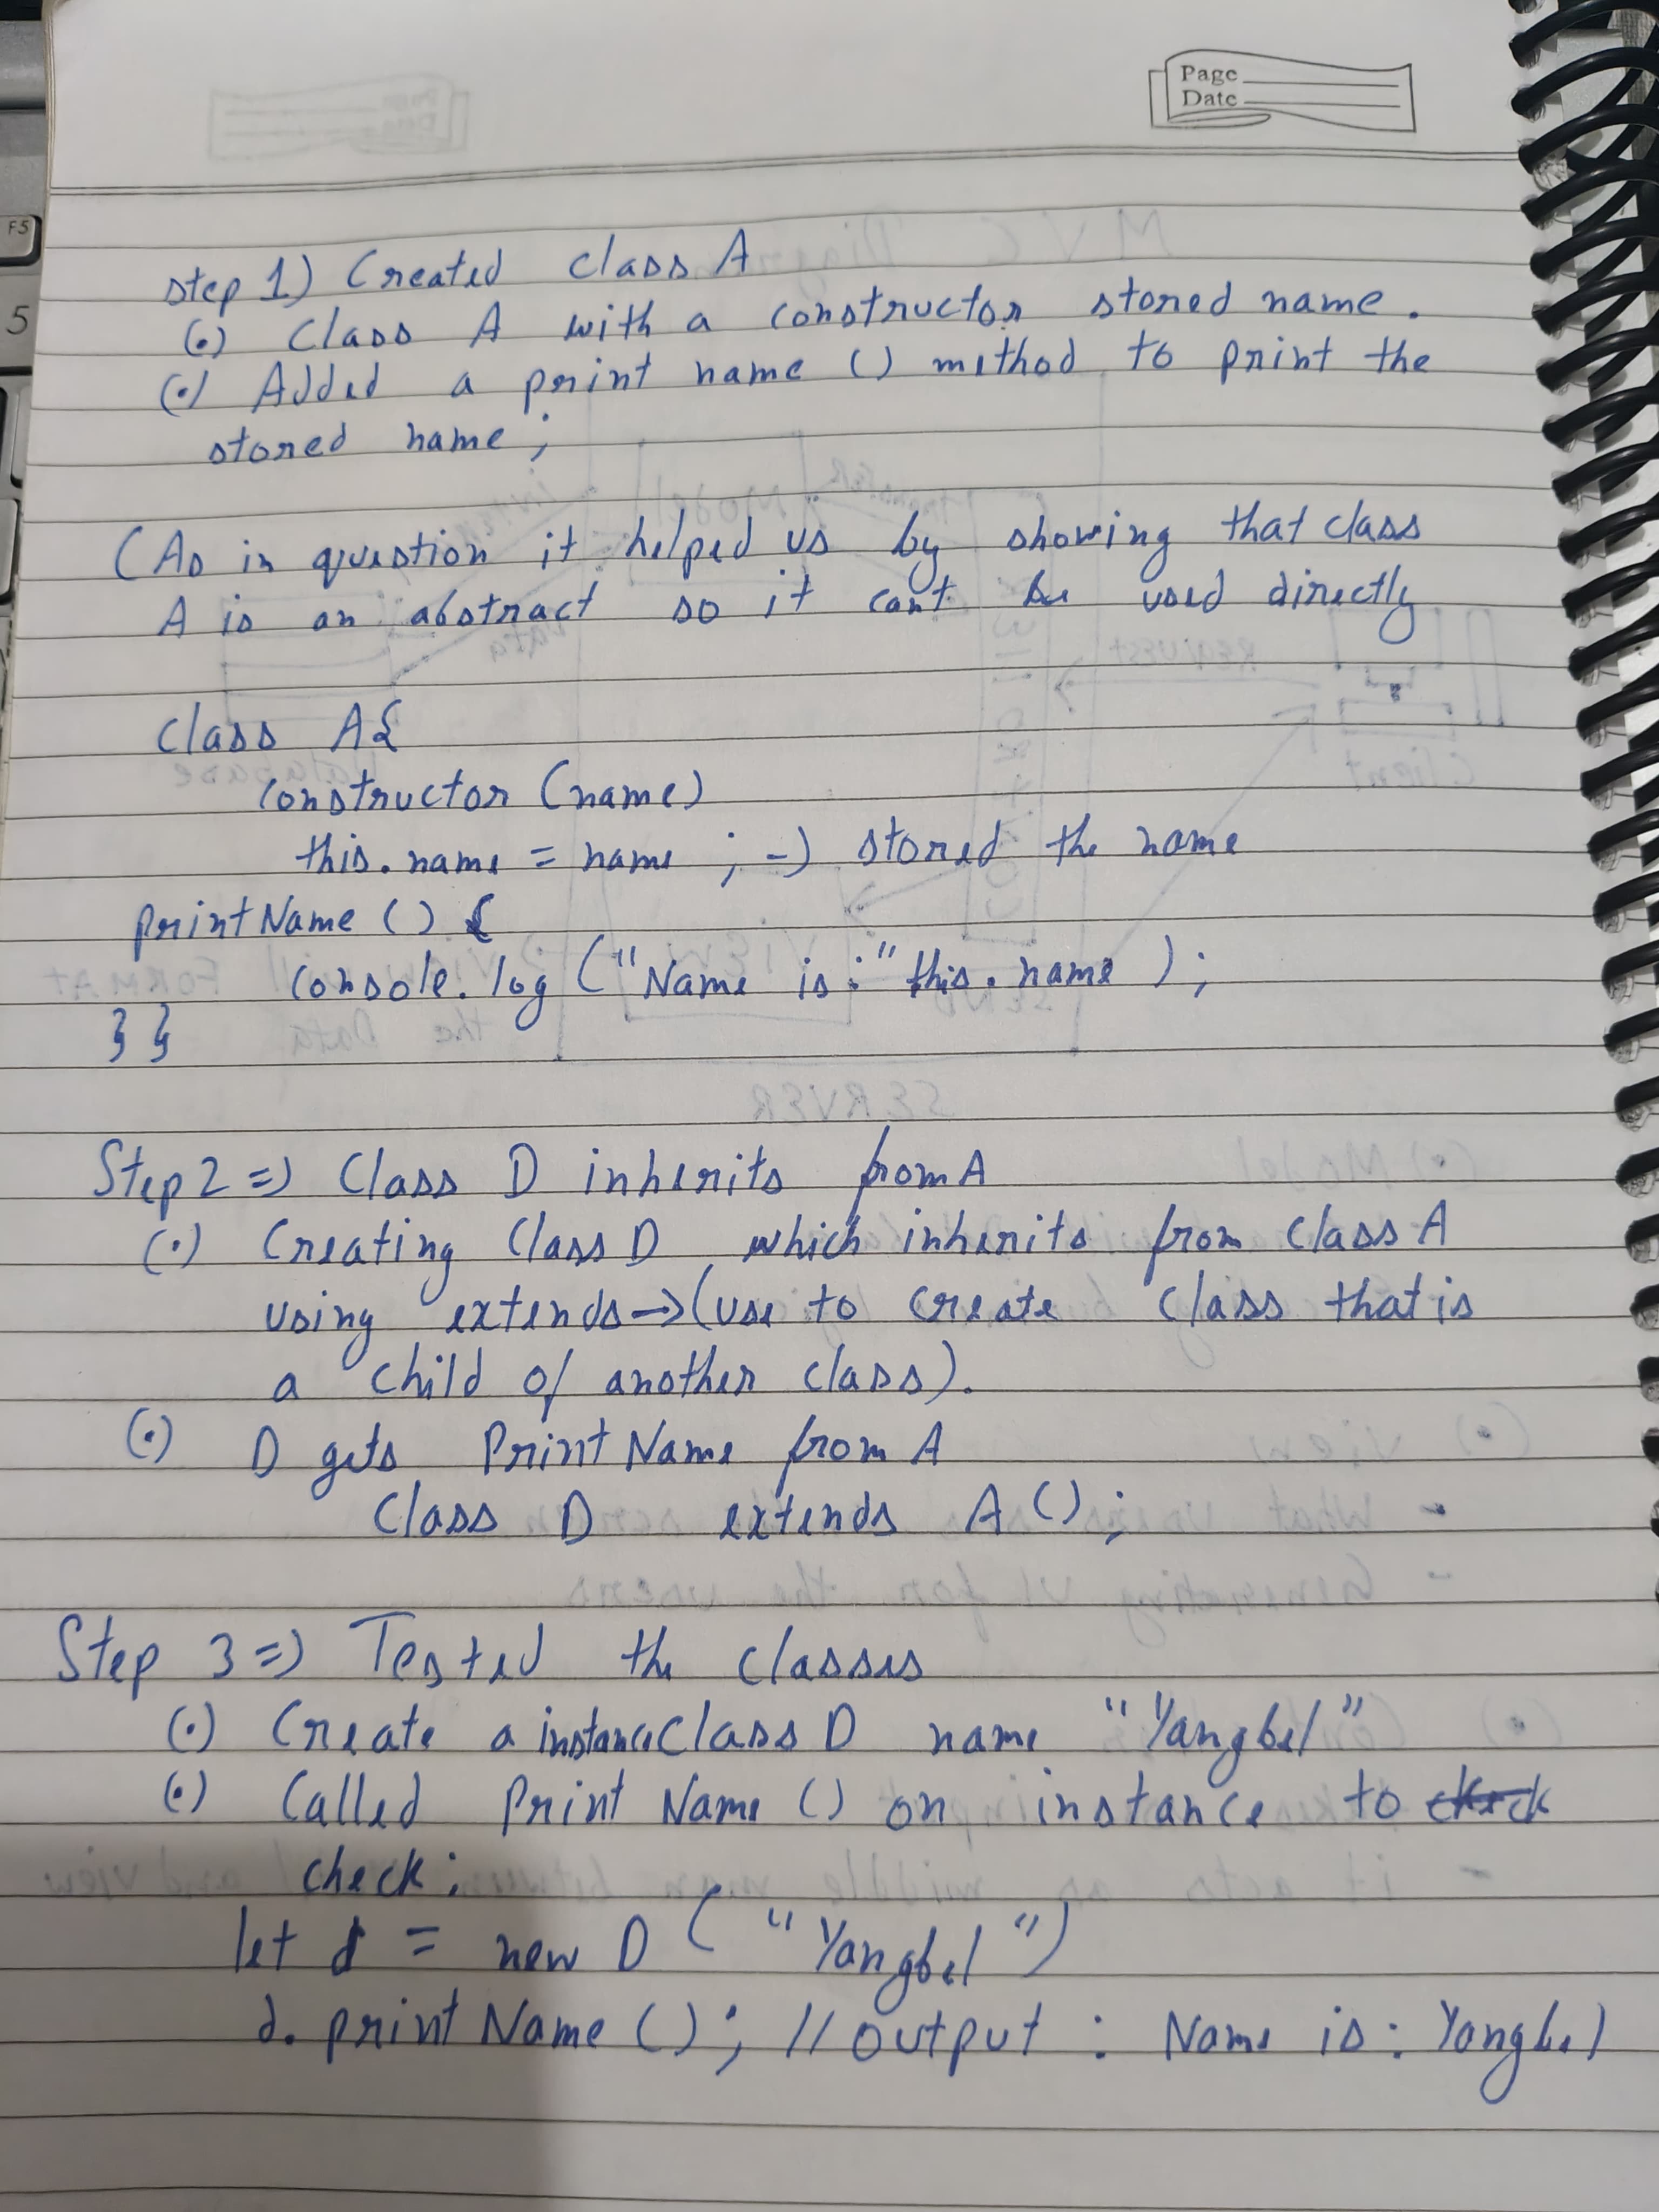 Page
Date
F5
5
step 1) Created class A
(•) Class A with a constructor stored name.
(•) Added a print name () method to print the
stored name ;
(As in question it helped us by showing that class
A is an abstract so it cant be used directly
class A{
constructor (name)
this.name = name ; -> stored the name
printName () {
console.log ("Name is:" this.name ) ;
} }
Step 2 => Class D inherits from A
(•) Creating Class D which inherits from class A
using extends -> (use to create class that is
a child of another class).
(•) D gets Print Name from A
Class D extends A () ;
Step 3 => Tested the classes
(•) Create a instance Class D name "Yangbel"
(•) Called Print Name () on instance to check
check :
let d = new D ( "Yangbel")
d. print Name () ; // output : Name is : Yangbel